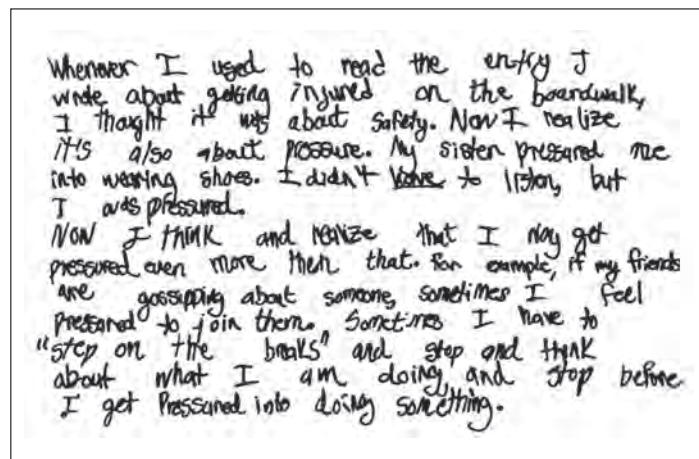 Whenever I used to read the entry I
wrote about getting injured on the boardwalk,
I thought it was about safety. Now I realize
it's also about pressure. My sister pressured me
into wearing shoes. I didn't have to listen, but
I was pressured.
Now I think and realize that I may get
pressured even more then that. For example, if my friends
are gossipping about someone, sometimes I feel
pressured to join them. Sometimes I have to
"step on the breaks" and stop and think
about what I am doing, and stop before
I get Pressured into doing something.